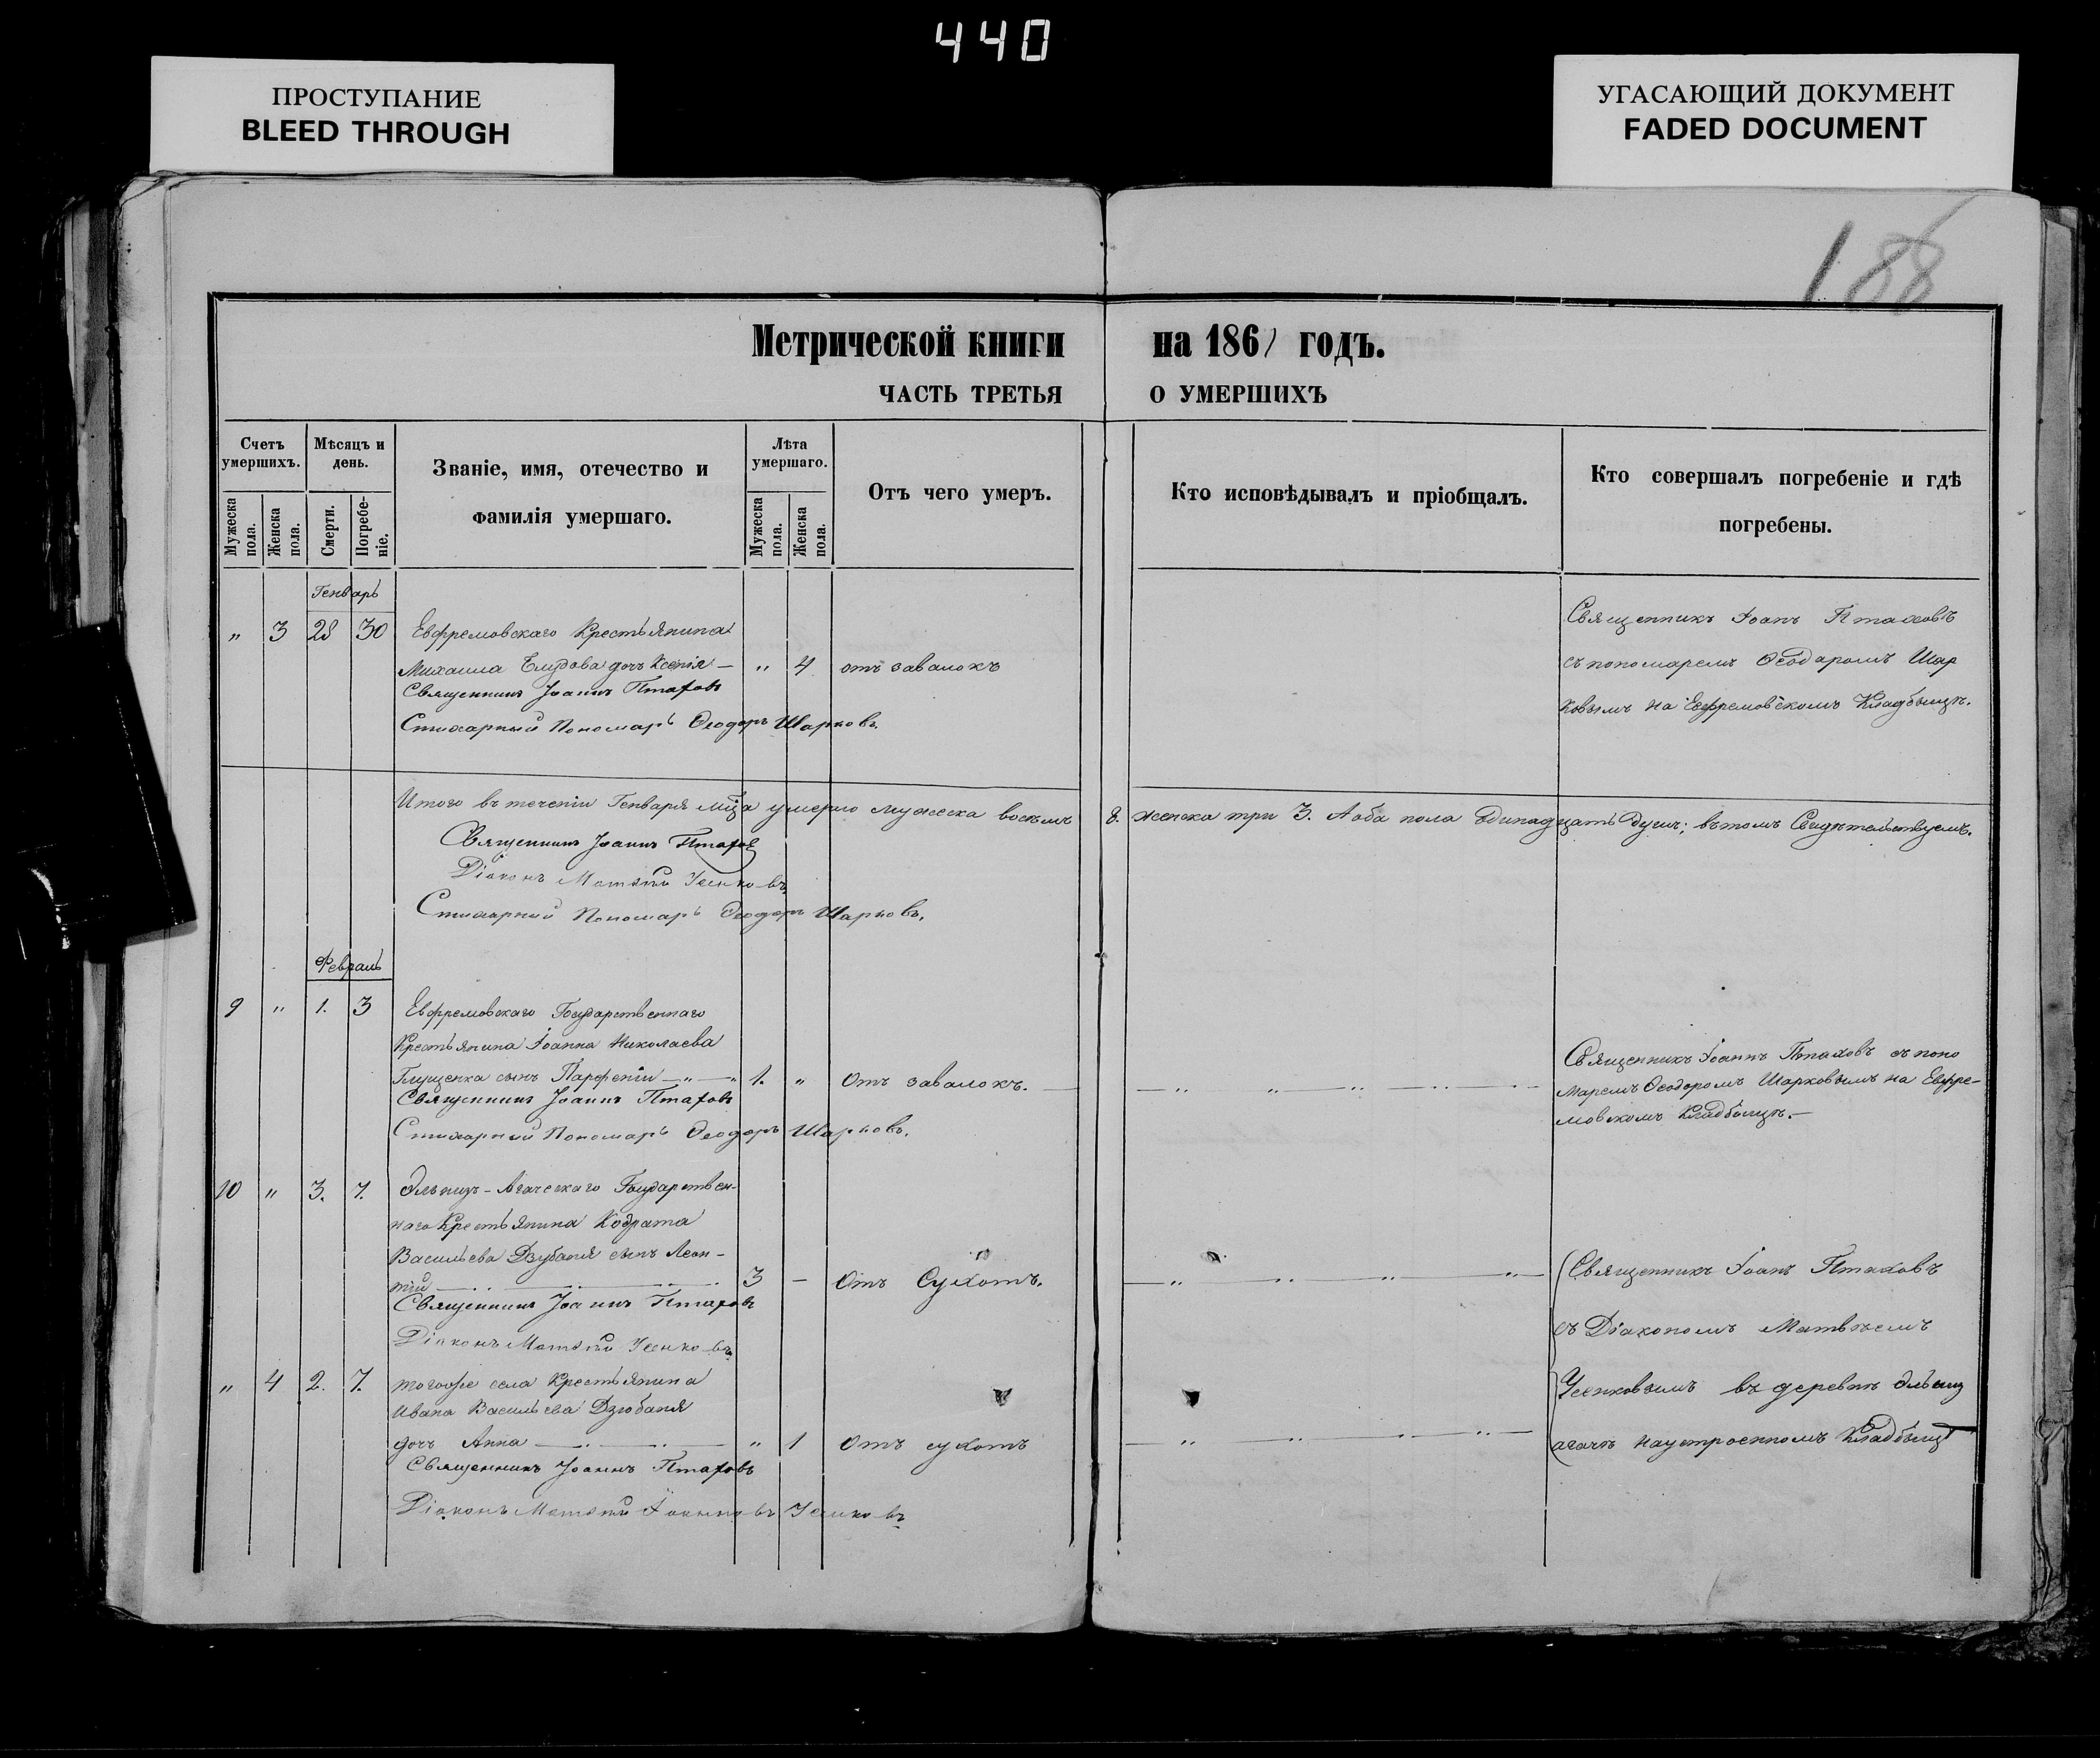 440
ПРОСТУПАНИЕ
BLEED THROUGH
УГАСАЮЩИЙ ДОКУМЕНТ
FADED DOCUMENT
188
Метрической книги на 1861 годъ.
ЧАСТЬ ТРЕТЬЯ О УМЕРШИХЪ
Счетъ умершихъ.
Мужеска пола.
Женска пола.
Мѣсяцъ и день.
Смерти.
Погребеніе.
Званіе, имя, отечество и
фамилія умершаго.
Лѣта умершаго.
Мужеска пола.
Женска пола.
Отъ чего умеръ.
Кто исповѣдывалъ и пріобщалъ.
Кто совершалъ погребеніе и гдѣ
погребены.
Генварь
" 3 28 30 Евфремовскаго Крестьянина
Михаила дочь Ксенія — " 4 отъ завалокъ
Священникъ Іоаннъ Птаховъ
Стихарный Пономарь Ѳеодоръ Шарковъ.
Священникъ Іоанъ Птаховъ
съ пономаремъ Ѳеодаромъ Шар
ковымъ на Евфремовскомъ Кладбыщѣ.
Итого въ теченіи Генваря мца умерло мужеска восемъ 8. женска три 3. А оба пола Одинадцать Душъ; въ томъ Свидѣтельствуемъ.
Священникъ Іоаннъ Птаховъ
Діаконъ Матѳѣй Усенковъ
Стихарный Пономарь Ѳеодоръ Шарковъ.
Февраль
9 " 1. 3 Евфремовскаго Государственнаго
Крестьянина Іоанна Николаева
Глущенка сынъ Парфеній — " — " 1. " Отъ завалокъ.
Священникъ Іоаннъ Птаховъ
Стихарный Пономарь Ѳеодоръ Шарковъ.
Священникъ Іоаннъ Птаховъ съ поно
маремъ Ѳеодоромъ Шарковымъ на Евфре-
мовскомъ Кладбыщѣ.—
10 " 3. 7. Государствен-
наго Крестьянина Кодрата
Васильева Дзубаня сынъ Леон-
тій 3 — Отъ Сухотъ.
Священникъ Іоаннъ Птаховъ
Діаконъ Матѳѣй Усенковъ
Священникъ Іоанъ Птаховъ
съ Діакономъ Матвѣемъ
Усенковымъ въ деревнѣ
агачѣ на устроенномъ Кладбыщѣ
" 4 2. 7. тогоже села Крестьянина
Ивана Васильева Дзюбаня
дочь Анна " 1 Отъ сухотъ
Священникъ Іоаннъ Птаховъ
Діаконъ Матѳѣй Іоанновъ Усенковъ